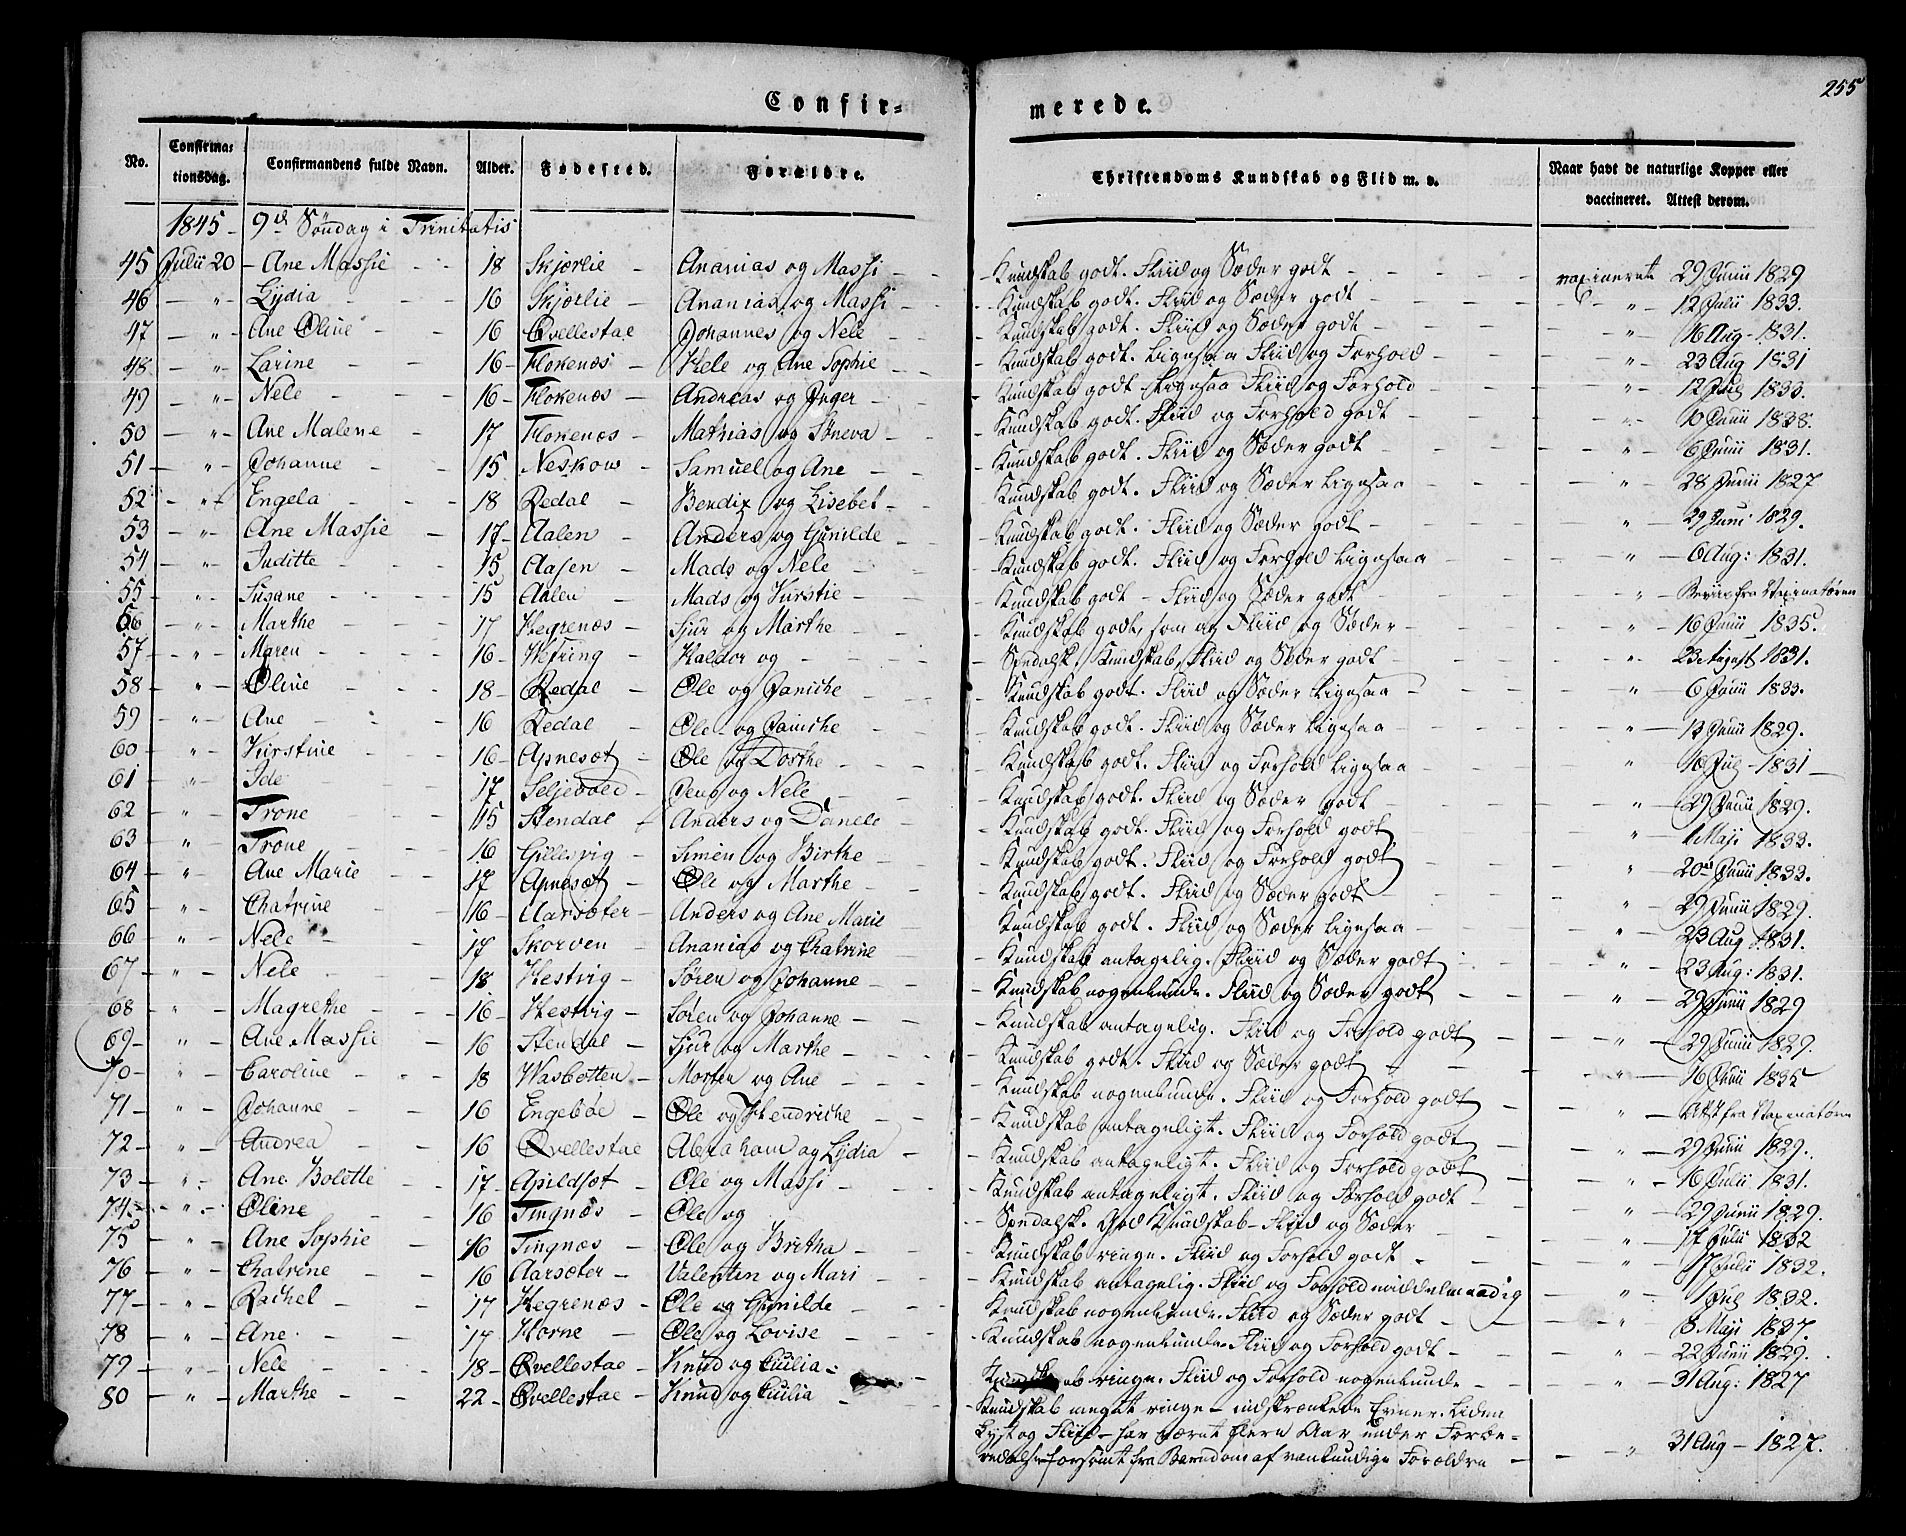 255
Confir= merede.
No. Confirmationsdag. Confirmandens fulde Navn. Alder. Fødested. Forældre. Christendoms Kundskab og Flid m. v. Naar havt de naturlige Kopper eller vaccineret. Attest derom.
1845 - 9d Søndag i Trinitatis
45 Julii 20 - Ane Massie - 18 Skjørlie - Ananias og Massi - Kundskab godt. Fliid og Sæder godt - vaxinerede 29 Junii 1829
46 - " - Lydia - 16 Skjørlie - Ananias og Massi - Kundskab godt. Fliid og Sæder godt - " - 12 Julii 1833.
47 - " - Ane Oline - 16 Qvellestae Johannes og Nele - Kundskab godt. Fliid og Sæder godt - " - 16 Aug - 1831.
48 - " - Larine - 16 - Flokenæs - Hele og Ane Sophie - Kundskab godt. Ligesaa Fliid og Forhold - " - 23 Aug 1831
49 - " - Nele - 16 - Flokenæs - Andreas og Inger - Kundskab godt ligesaa Fliid og Forhold - " - 12 Jul 1833.
50 - " - Ane Malene - 17 Flokenæs - Mathias og Søneva - Kundskab godt. Fliid og Forhold godt - " - 10 Junii 1838.
51 - " - Johanne - 15 Neskow - Samuel og Ane - Kundskab godt. Fliid og Sæder godt - " - 6 Junii 1831.
52 - " - Engela - 18 Redal - Bendix og Lisebet - Kundskab godt. Fliid og Sæder ligesaa - " - 28 Junii 1827
53 - " - Ane Massie - 17 - Aalen - Anders og Gunilde - Kundskab godt. Fliid og Sæder godt - " - 29 Juni 1829.
54 - " - Juditte - 15 Aasen - Mads og Nele - Kundskab godt. Fliid og Forhold ligesaa - " - 6 Aug: 1831.
55 - " - Susane - 15 Aalen - Mads og Kirstie - Kundskab godt - Fliid og Sæder godt - " - Beviis fra Vaxinatøren
56 - " - Marthe - 17 Hegrenæs - Sjur og Marthe - Kundskab godt, som og Fliid og Sæder - " - 16 Junii 1835.
57 - " - Maren - 16 - Hefring - Haldor og - Spedalsk. Kundskab, Fliid og Sæder godt - " - 23 August 1831.
58 - " - Oline - 18 - Redal - Ole og Janiche - Kundskab godt. Fliid og Sæder ligesaa - " - 6 Junii 1833.
59 - " - Ane - 16 Redal - Ole og Janiche - Kundskab godt. Fliid og Sæder ligesaa - " - 13 Junii 1829.
60 - " - Kirstine - 16 - Apnesæt - Ole og Dorthe - Kundskab godt. Fliid og Forhold ligesaa - " - 16 Jul - 1831
61 - " - Sele - 17 Seljevold - Jens og Nele - Kundskab godt. Fliid og Sæder godt - " - 29 Junii 1829.
62 " - Trone - 15 Stendal - Anders og Danele - Kundskab godt. Fliid og Forhold godt - " - 1 Maji 1833.
63 " - Trone - 16 Gillesvig - Simen og Birthe - Kundskab godt. Fliid og Forhold godt - " - 20 Junii 1833.
64 " - Ane Marie - 17 Apnesæt - Ole og Marthe - Kundskab godt. Fliid og Sæder godt - " - 29 Junii 1829.
65 " - Chatrine - 16 - Aarsæter - Anders og Ane Marie - Kundskab godt. Fliid og Sæder ligesaa - " - 23 Aug 1831.
66 " - Nele - 17 Skorven - Ananias og Chatrine - Kundskab antagelig. Fliid og Sæder godt - " - 23 Aug: 1831.
67 - " - Nele - 18 Hestvig - Søren og Johanne - Kundskab nogenlunde. Fliid og Sæder godt - " - 29 Junii 1829
68 " - Magrethe - 16 - Hestvig - Søren og Johanne - Kundskab antagelig. Fliid og Forhold godt - " - 29 Junii 1829.
69 - " - Ane Massie - 16 Stendal - Sjur og Marthe - Kundskab godt. Fliid og Sæder godt - " - 16 Junii 1835
70 - " - Caroline - 18 Wasbotten - Morten og Ane - Kundskab nogenlunde. Fliid og Forhold godt - " - Attst fra Vaxinatøren
71 - " - Johanne - 16 Engebøe - Ole og Hendriche - Kundskab antageligt. Fliid og Forhold godt - " - 29 Junii 1829.
72 - " - Andrea - 16 Qvellestae Abraham og Lydia - Kundskab antageligt. Fliid og Forhold godt - " - 16 Julii 1831.
73 - " - Ane Bolette - 17 - Apildsæt - Ole og Massi - Kundskab antageligt. Fliid og Forhold godt - " - 29 Junii 1829.
74 - " - Oline - 16 Tingnæs - Ole og Spedalsk. God Kundskab - Fliid og Sæder - " - 17 Julii 1832
75 - " - Ane Sophie - 16 Tingnæs - Ole og Britha - Kundskab ringe. Fliid og Forhold godt - " - 17 Julii 1832.
76 - " - Chatrine - 16 Aarsæter - Valentin og Mari - Kundskab antagelig. Fliid og Forhold middelmaadig - " - 1 Jul 1832.
77 - " - Rachel - 17 Hegrenæs - Ole og Gunilde - Kundskab nogenlunde. Fliid og Sæder godt - " - 8 Maji 1837.
78 - " - Ane - 17 Horne - Ole og Lovise - Kundskab nogenlunde. Fliid og Forhold godt - " - 22 Junii 1829.
79 - " - Nele - 18 - Qvellestae - Knud og Cicilia - Kundskab ringe. Fliid og Forhold nogenlunde - " - 31 Aug: 1827
80 - " - Marthe - 22 - Qvellestae - Knud og Cicilia - Kundskab meget ringe - indskrænkede Evner. Liden
Lyst og Fliid - har været flere Aar under Forbe-
redelse forsømt fra Barndom af vankundige Forældre - " - 31 Aug - 1827.